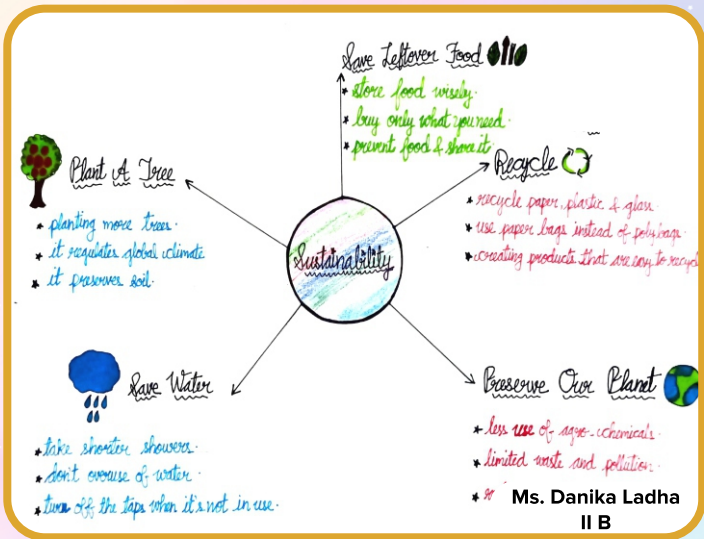 Save Leftover Food
* store food wisely.
* buy only what you need.
* prevent food & share it.
Plant A Tree
* planting more trees.
* it regulates global climate
* it preserves soil.
Recycle
* recycle paper, plastic & glass.
* use paper bags instead of polybags.
* creating products that are easy to recycl
Sustainability
Save Water
* take shorter showers.
* don't overuse of water.
* turn off the taps when it's not in use.
Preserve Our Planet
* less use of agro-chemicals.
* limited waste and pollution.
*
Ms. Danika Ladha
II B